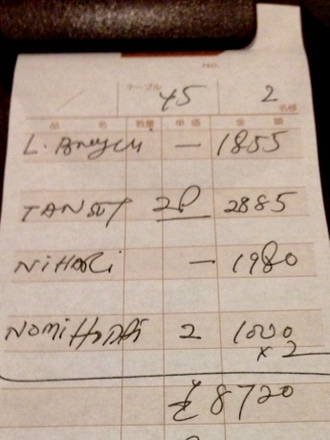 NO.
テーブル 45 2 名様
品 名 数量 単価 金 額
L. — 1855
2P 2885
NiHARi — 1980
NOMiHODAi 2 1000
x 2
¥ 8720